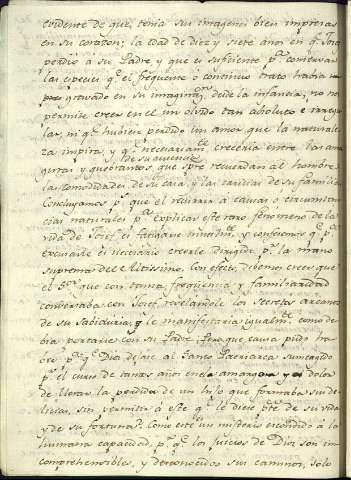 evidente de que tenía sus imagenes bien impresas
en su corazon; la edad de diez y siete años en q.e
perdio á su Padre, y que es suficiente p.a conservar
las especies q.e el freqüente o continuo trato habia
gravado en su imaginac.on desde la infancia, no nos
permite creer en el un olvido tan absoluto e irregu
lar, ni q.e hubiese perdido un amor que la naturale
za inspira, y q.e necesariam.te creceria entre las am
guras y quebrantos, que spre recuerdan al hombre
de su ausencia
las comodidades de su casa, y las caricias de su familia
Concluyamos p.s que el recurrir a causas o circunstan
cias naturales p.a explicar este raro fenomeno de la
vida de Josef es fatigarse inutilm.te y confesemos q.e p.a
excusarle es necesario creerle dirigido p.r la mano
suprema del Altissimo. Con efecto, debemos creer que
el S.r que con tanta freqüencia y familiaridad
conversaba con Josef revelandole los secretos arcanos
de su Sabiduria, q.e le manifestaria igualm.te como de
bia portarse con su Padre. Pero que causa pudo ha
ber p.a q.e Dios dejase al Santo Patriarca sumergido
p.r el curso de tantos años en la amargura y el dolor
de llorar la perdida de un hijo que formaba sus de
licias, sin permitir á este q.e le diese p.te de su vida
y de su fortuna? Como este un misterio escondido á la
humana capacidad, p.r q.e los juicios de Dios son in
comprehensibles, y desconocidos sus caminos, solo